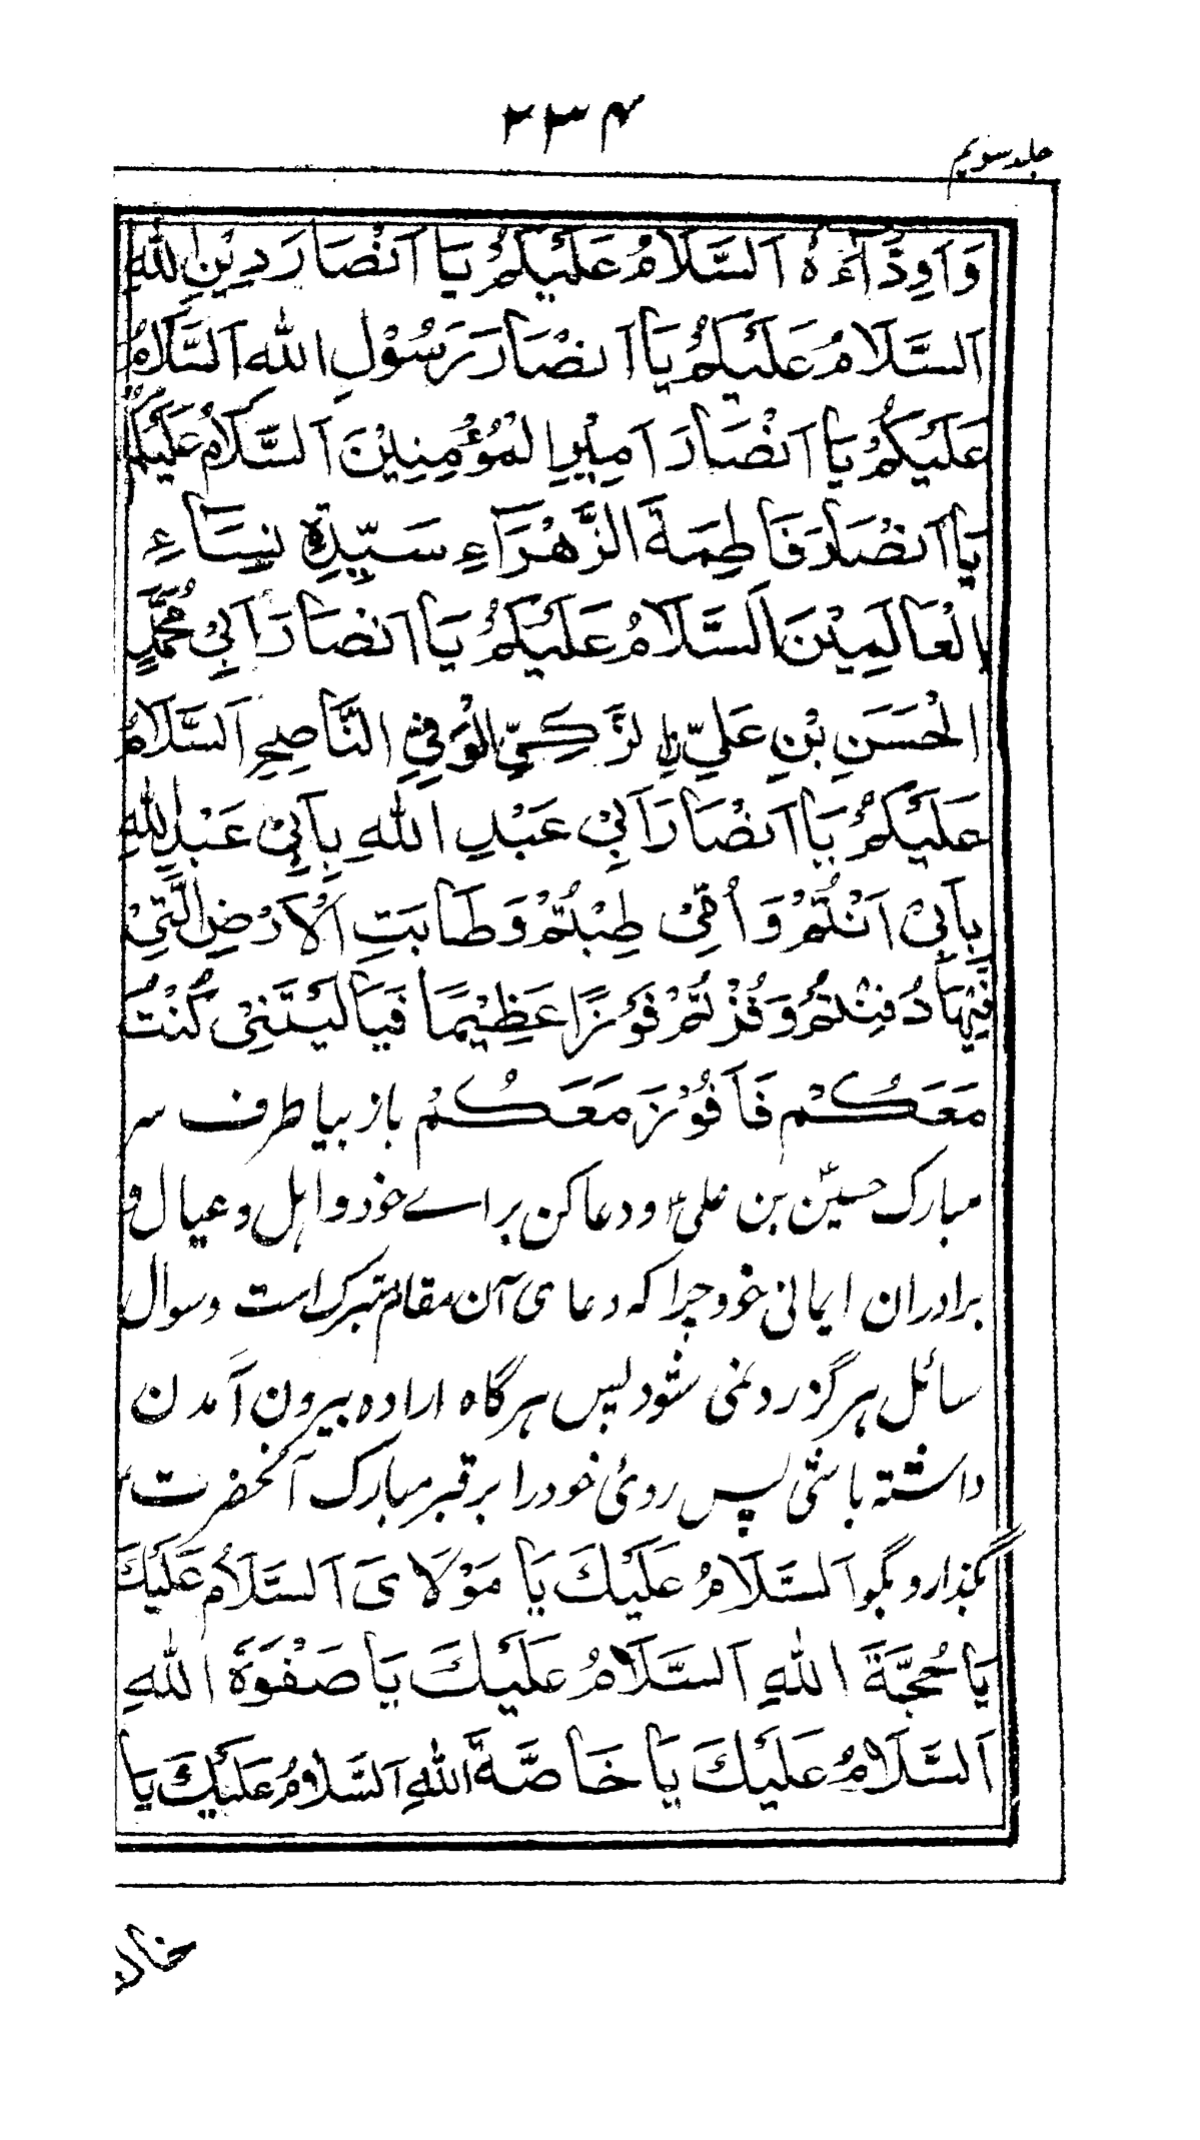 ۲۳۴
جلد سویم
وَاَوِدَّآءَہُ اَلسَّلَامُ عَلَیْکُمْ یَا اَنْصَارَ دِیْنِ اللّٰہِ
اَلسَّلَامُ عَلَیْکُمْ یَا اَنْصَارَ رَسُوْلِ اللّٰہِ اَلسَّلَامُ
عَلَیْکُمْ یَا اَنْصَارَ اَمِیْرِ الْمُؤْمِنِیْنَ اَلسَّلَامُ عَلَیْکُمْ
یَا اَنْصَارَ فَاطِمَةَ الزَّهْرَآءِ سَیِّدَةِ نِسَآءِ
الْعَالَمِیْنَ اَلسَّلَامُ عَلَیْکُمْ یَا اَنْصَارَ اَبِیْ مُحَمَّدٍ
الْحَسَنِ بْنِ عَلِیِّ نِ لزَّکِیِّ الْوَفِیِّ النَّاصِحِ اَلسَّلَامُ
عَلَیْکُمْ یَا اَنْصَارَ اَبِیْ عَبْدِ اللّٰہِ بِاَبِیْ عَبْدِ اللّٰہِ
بِاَبِیْ اَنْتُمْ وَ اُمِّیْ طِبْتُمْ وَ طَابَتِ الْاَرْضِ الَّتِیْ
فِیْهَا دُفِنْتُمْ وَ فُزْتُمْ فَوْزًا عَظِیْمًا فَیَا لَیْتَنِیْ کُنْتُ
مَعَکُمْ فَاَفُوْزَ مَعَکُمْ باز بیا طرف سر
مبارک حسینؑ بن علیؑ و دعا کن براے خود و اہل و عیال و
برادران ایمانی خود چرا کہ دعا ی آن مقام متبرک است و سوال
سائل ہرگز رد نمی شود پس ہرگاہ ارادہ بیرون آمدن
داشتہ باشی پس روئ خود را بر قبر مبارک آنحضرتؑ
بگذار و بگو اَلسَّلَامُ عَلَیْکَ یَا مَوْلَایَ اَلسَّلَامُ عَلَیْکَ
یَا حُجَّةَ اللّٰہِ اَلسَّلَامُ عَلَیْکَ یَا صَفْوَةَ اللّٰہِ
اَلسَّلَامُ عَلَیْکَ یَا خَاصَّةَ اللّٰہِ اَلسَّلَامُ عَلَیْکَ یَا